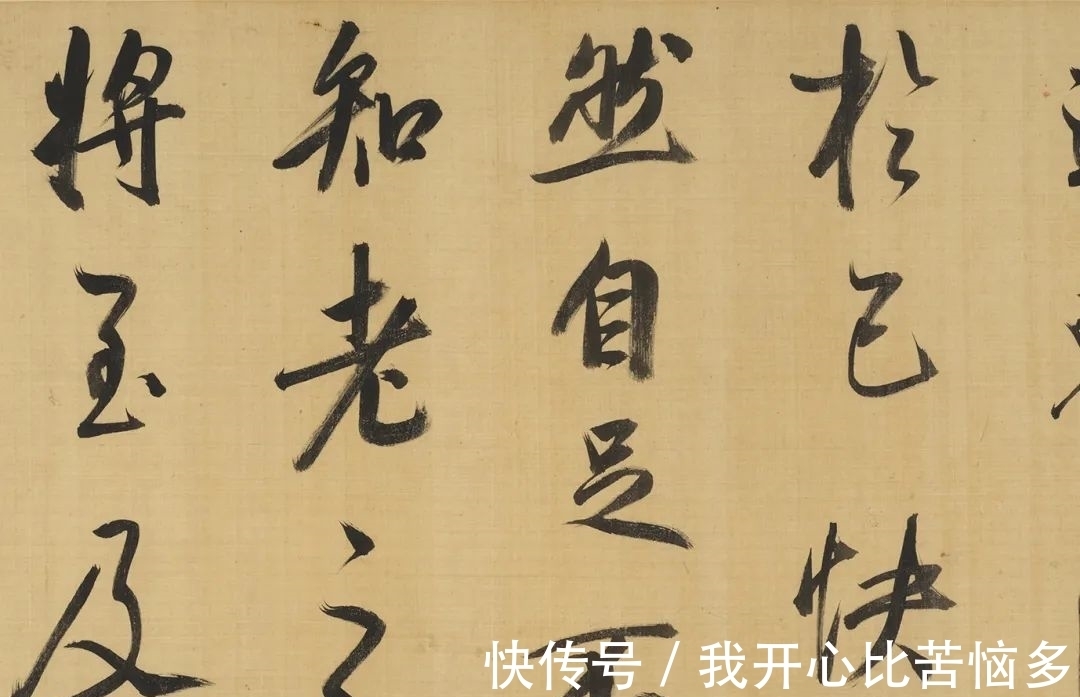 於己快
然自足不
知老之
將至及
快传号 / 我开心比苦恼多